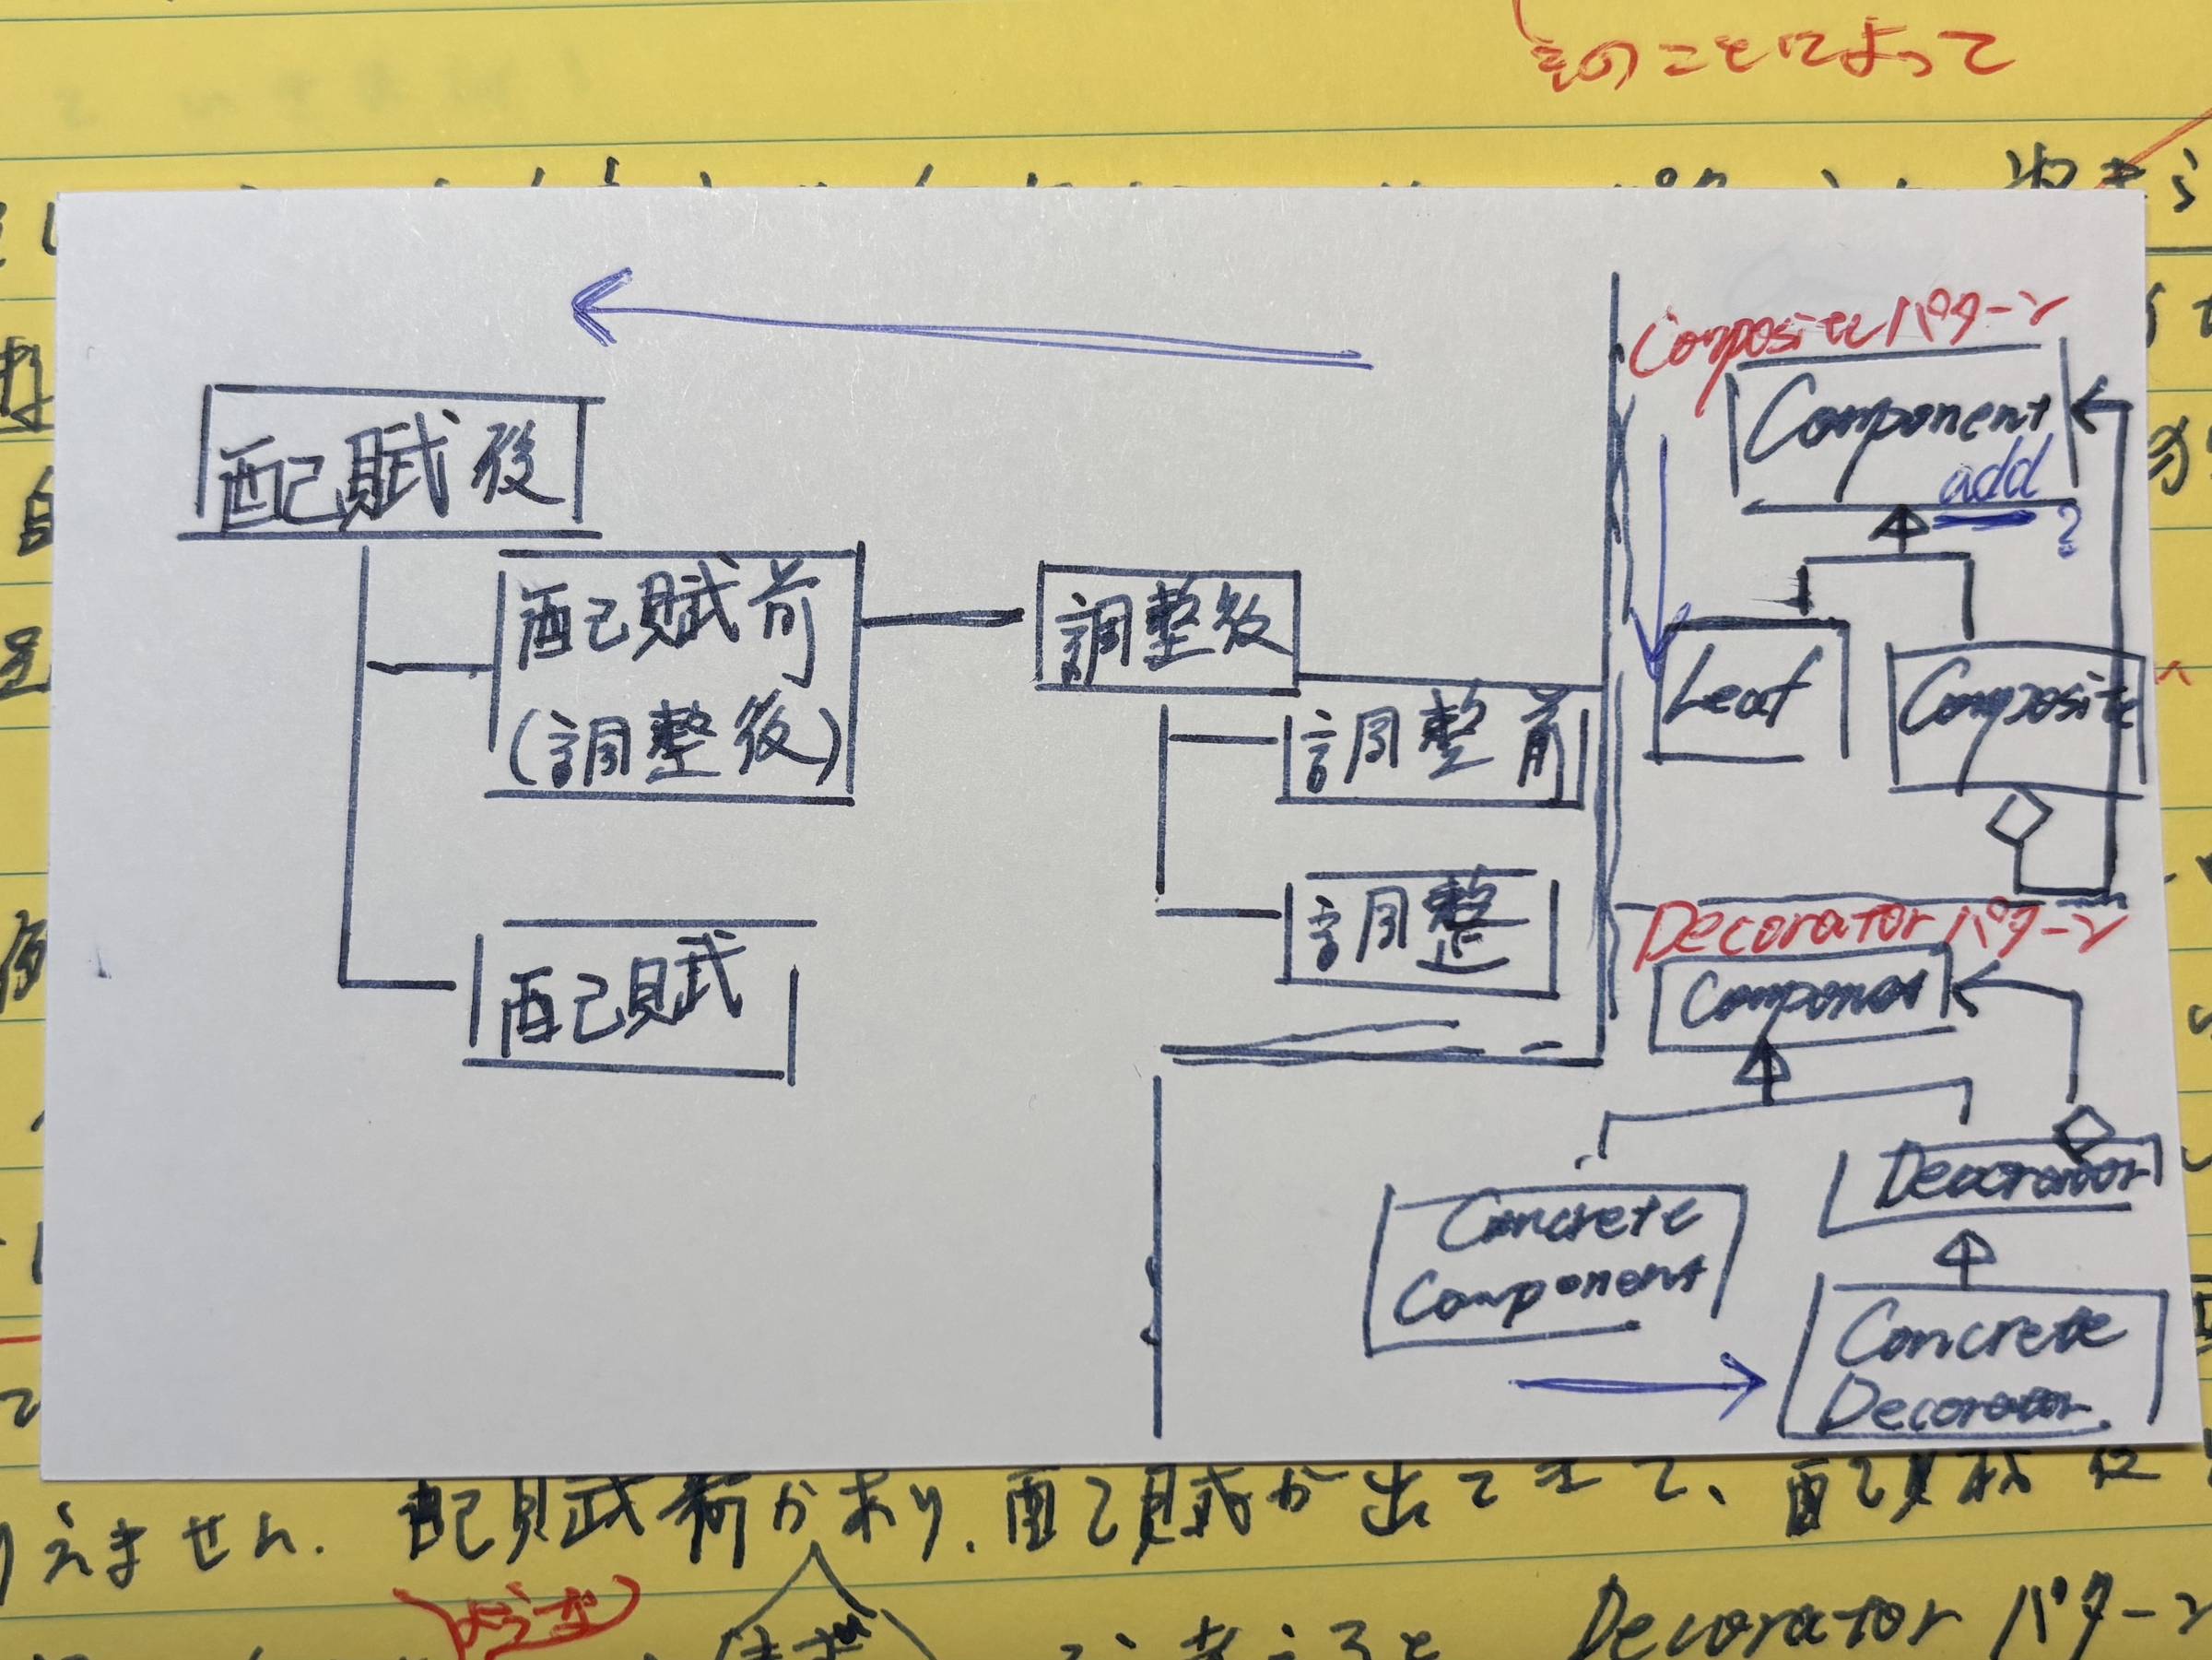 そのことによって
配賦後
配賦前
(調整後)
配賦
調整後
調整前
調整
Compositeパターン
Component
add
?
Leaf
Composite
Decoratorパターン
Component
Decorator
Concrete
Component
Concrete
Decorator
えません. 配賦前があり、配賦が出てきて、配賦
Decorator パターン